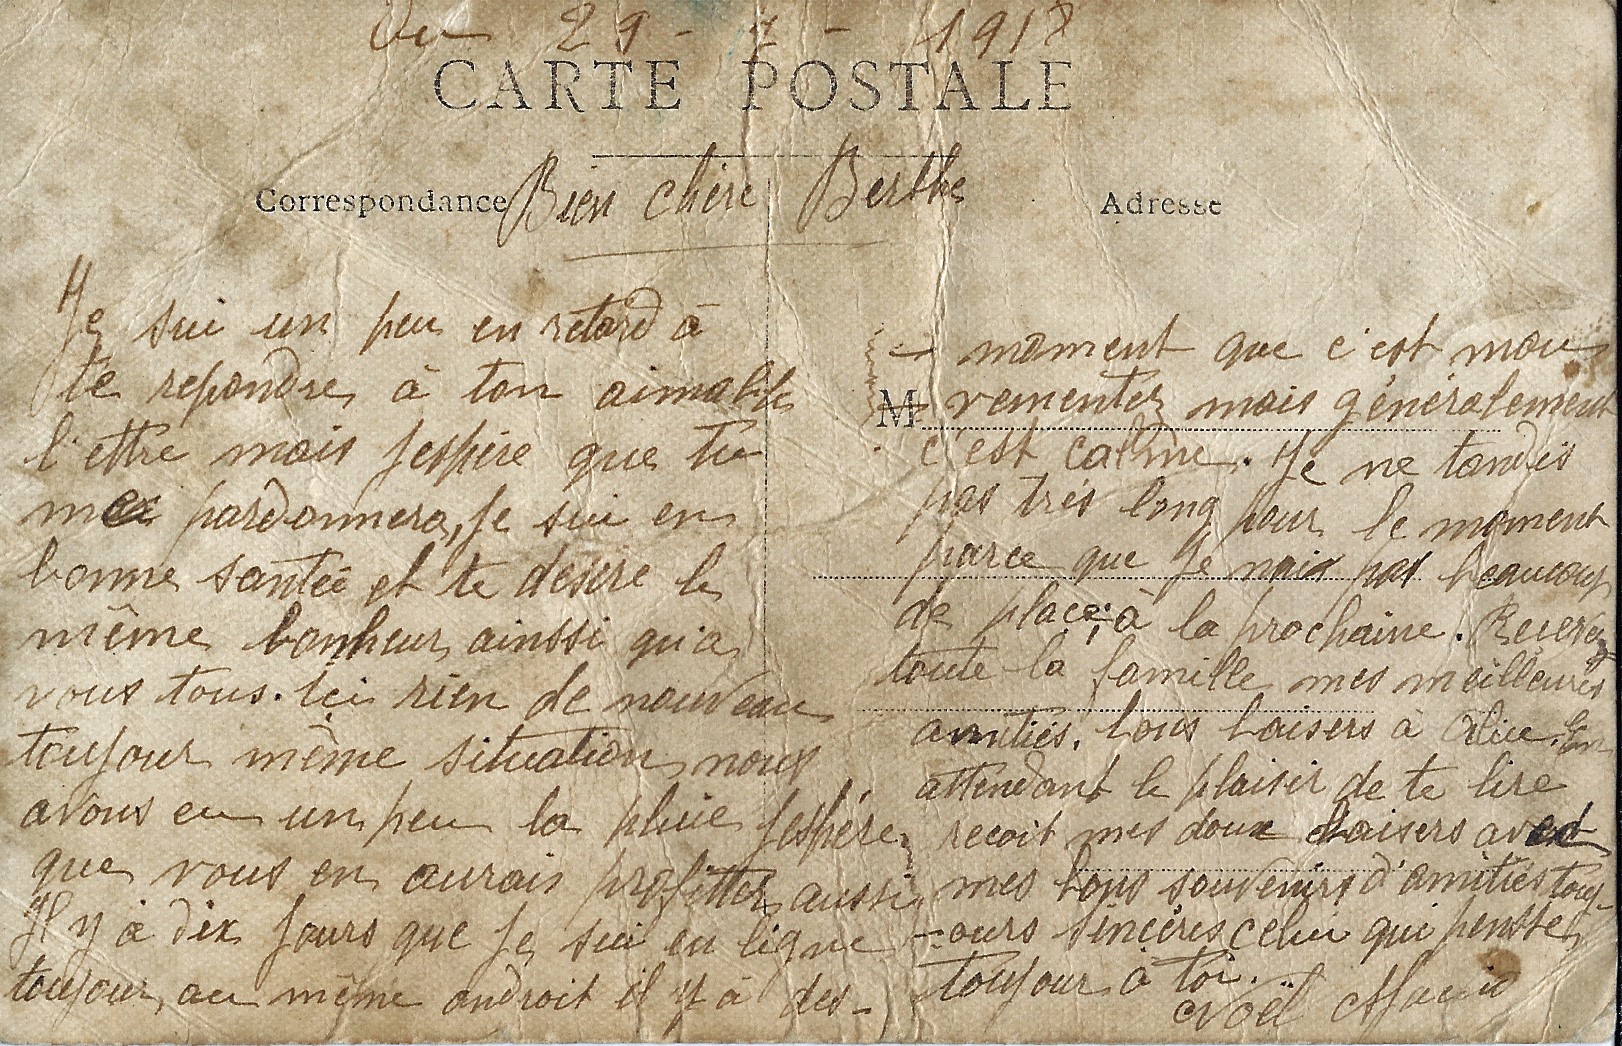 Du 29 - 7 - 1918
CARTE POSTALE
Correspondance
Adresse
Bien chère Berthe
Je sui un peu en retard à
te repondre à ton aimable
l'ettre mais j'espère que tu
me pardonnera, Je sui en
bonne santée et te désire le
même bonheur ainssi qu'a
vous tous. Ici rien de nouveau
toujour même situation nous
avons eu un peu la pluie j'espère
que vous en aurais profitter aussi
Il y à dix jours que je sui en ligne
toujour, au même androit il y à des-
- moment que c'est mou
M
vementer mais généralement
c'est calme. Je ne t'endis
pas très long pour le moment
parce que Je n'aix pas beaucoup
de place, à la prochaine.
toute la famille mes meilleures
amitiés. bons baisers à Alice. En
attendant le plaisir de te lire
recoit mes doux baisers avec
mes bons souvenirs d'amitiés touj-
-ours sincères celui qui pensse
toujour à toi.
Noël